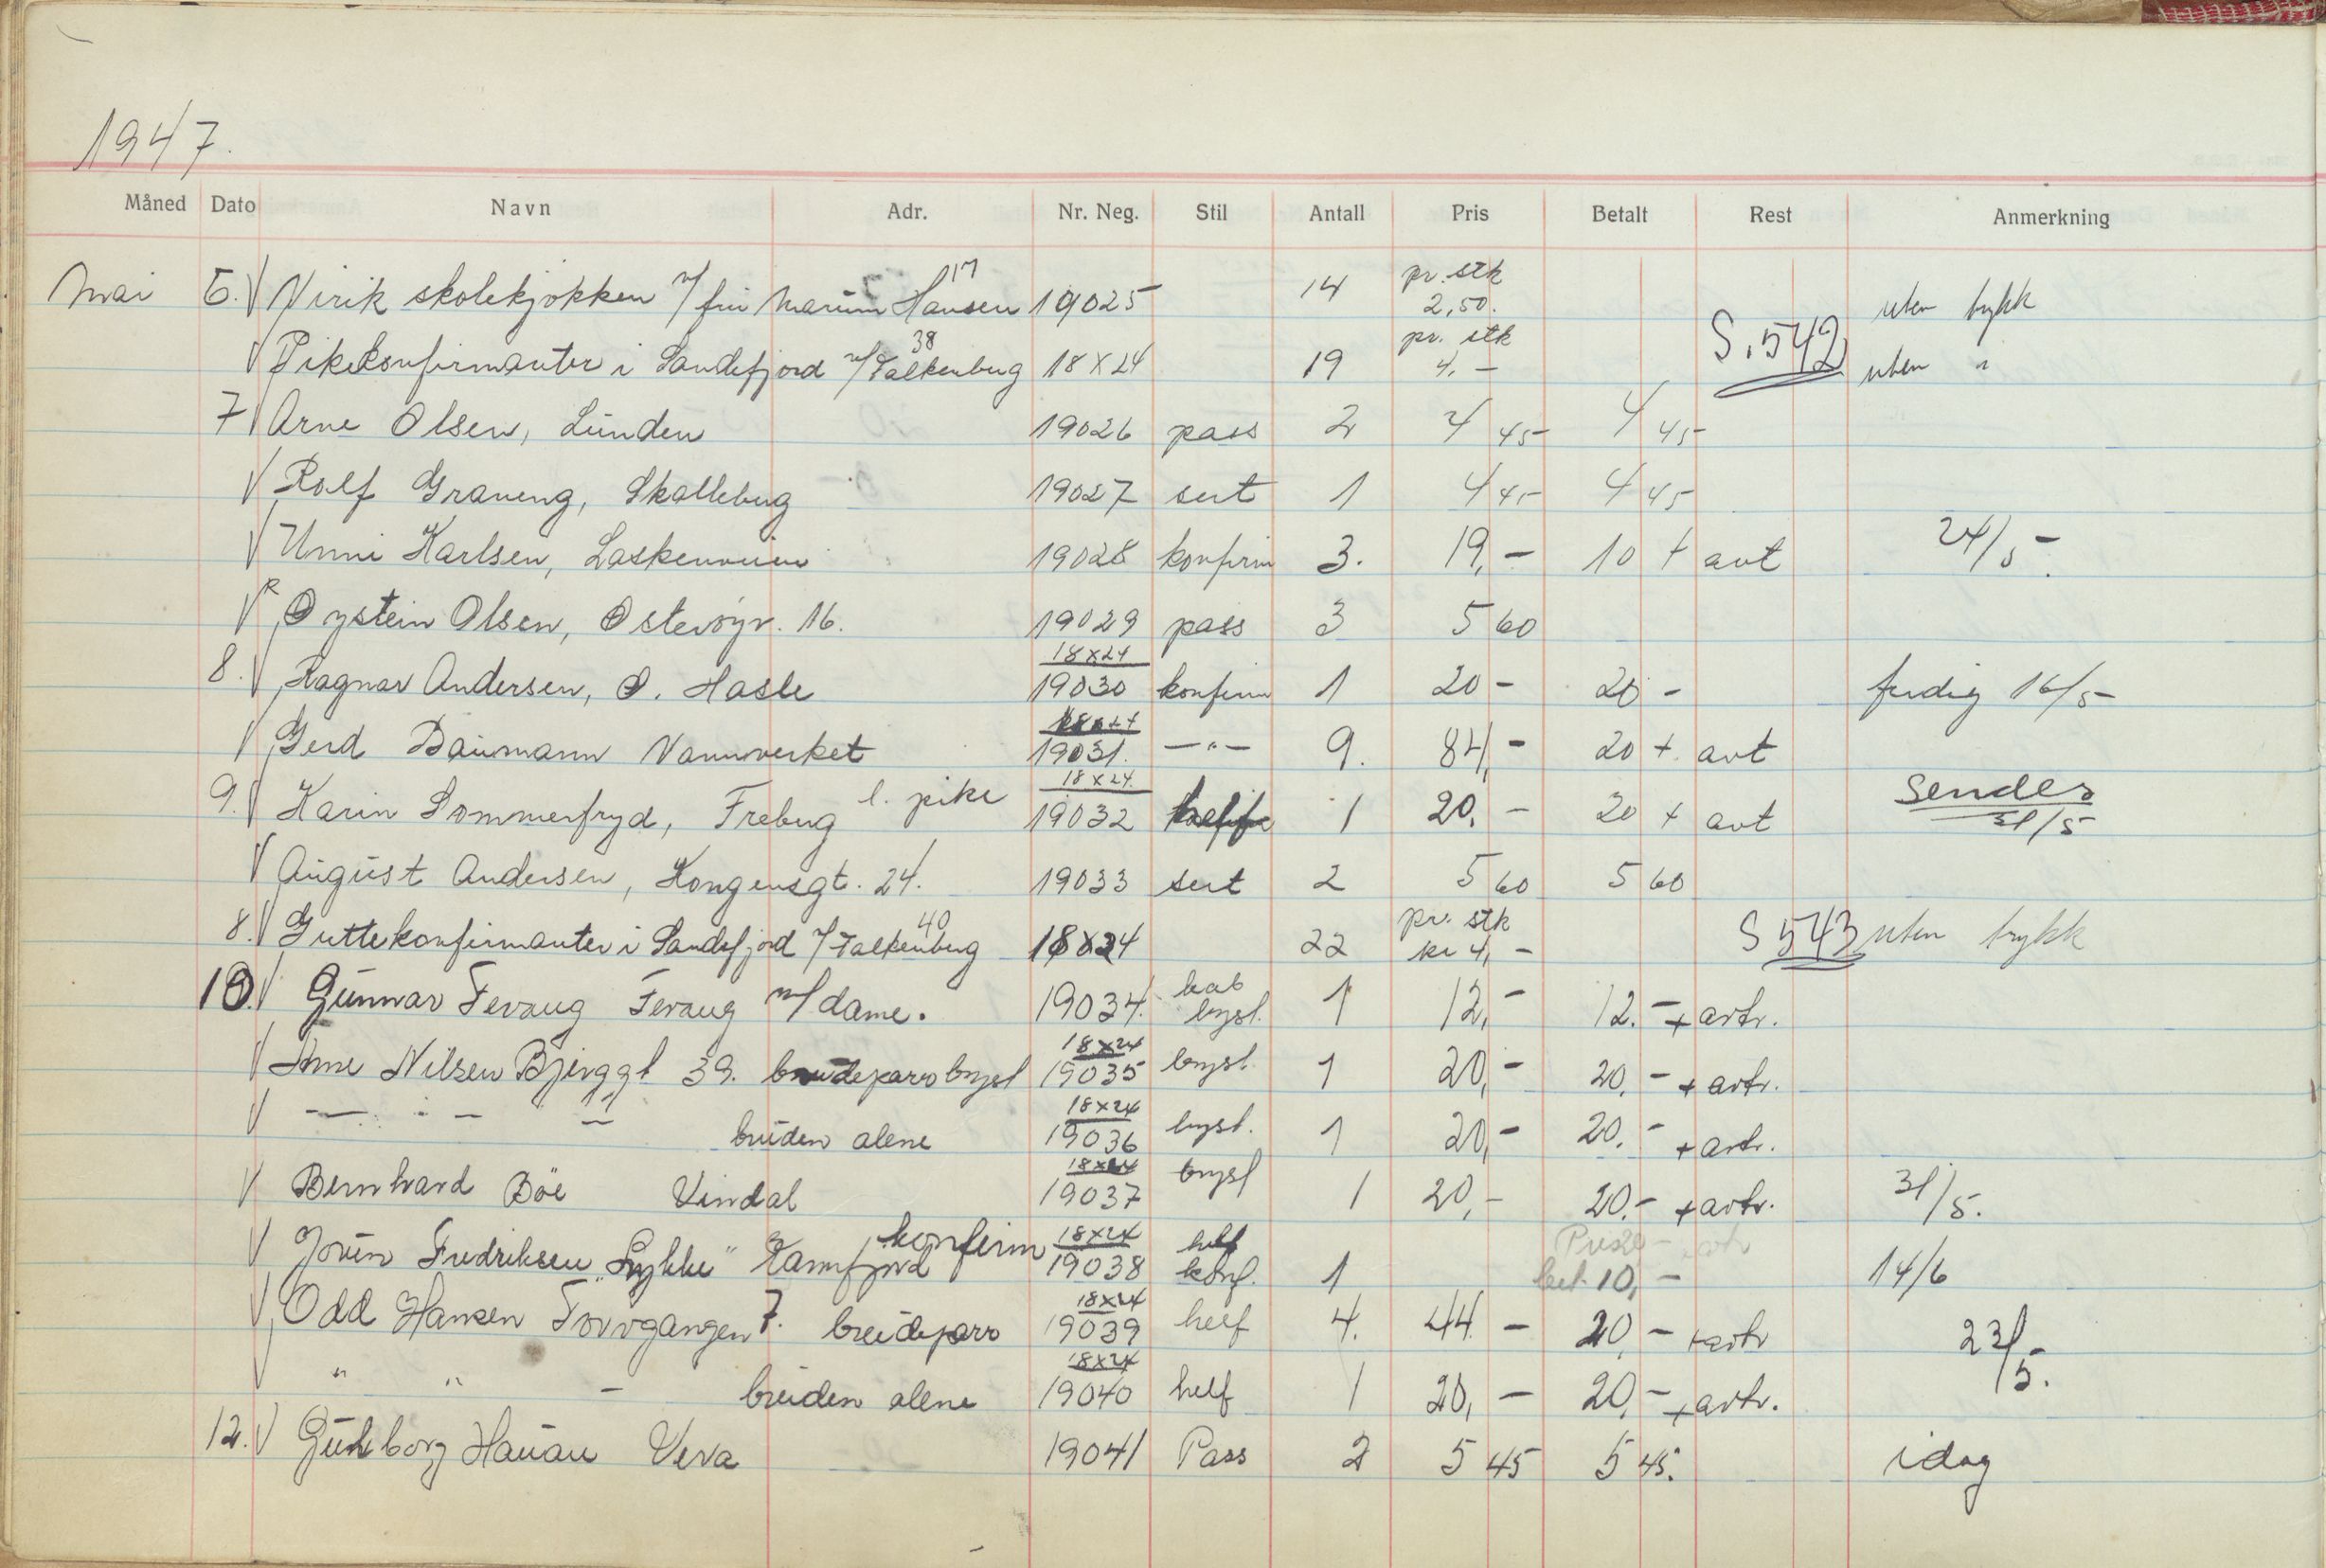 1947.
Måned Dato Navn Adr. Nr. Neg. Stil Antall Pris Betalt Rest Anmerkning
Mai 6. Virik skolekjøkken v/ fru Marum Hansen 17 19025 14 pr. stk 2,50. uten trykk
Pikekonfirmanter i Sandefjord v/Falkenberg 38 18x24 19 pr. stk 4,- S. 542 uten "
7 Arne Olsen, Lunden 19026 pass 2 4 45 4 45
Rolf Graveng, Skalleberg 19027 sert 1 4 45 4 45
Unni Karlsen, Laskenveien 19028 konfirm 3. 19,- 10 + avt 24/5-.
R Øystein Olsen, Østerøyv. 16. 19029 pass 3 5 60
8. Ragnar Andersen, Ø. Hasle 18x24 19030 konfirm 1 20 - 20 - ferdig 16/5-
Gerd Baumann Vannverket 18x24 19031. -"- 9. 84,- 20 + avt
9. Karin Sommerfryd, Freberg l. pike 18x24. 19032 1 20,- 20 + avt Sendes 31/5
August Andersen, Kongensgt. 24. 19033 sert 2 5 60 5 60
8. Guttekonfirmanter i Sandefjord v/Falkenberg 40 18x24 22 pr. stk kr 4,- S 543 uten trykk
10. Gunnar Fevang Fevang m/dame. 19034. kab bryst. 1 12,- 12.- + avtr.
Arne Nilsen Bjerggt 39. brudepar bryst 18x24 19035 bryst. 1 20,- 20.- + avtr.
- " - " bruden alene 18x24 19036 bryst. 1 20,- 20.- + avtr.
Bernhard Bøe Vindal 18x24 19037 bryst 1 20,- 20.- + avtr. 31/5.
Jorun Fredriksen "Lykke" Kamfjord konfirm 18x24 19038 helf konf. 1 Pris 20 - avtr bet. 10,- 14/6
Odd Hansen Torvgangen 7. brudepar 18x24 19039 helf 4. 44 - 20,- + avtr 23/5-.
" " - bruden alene 18x24 19040 helf 1 20,- 20,- + avtr.
12. Gunborg Hauan Vera 19041 Pass 2 5 45 5 45. idag